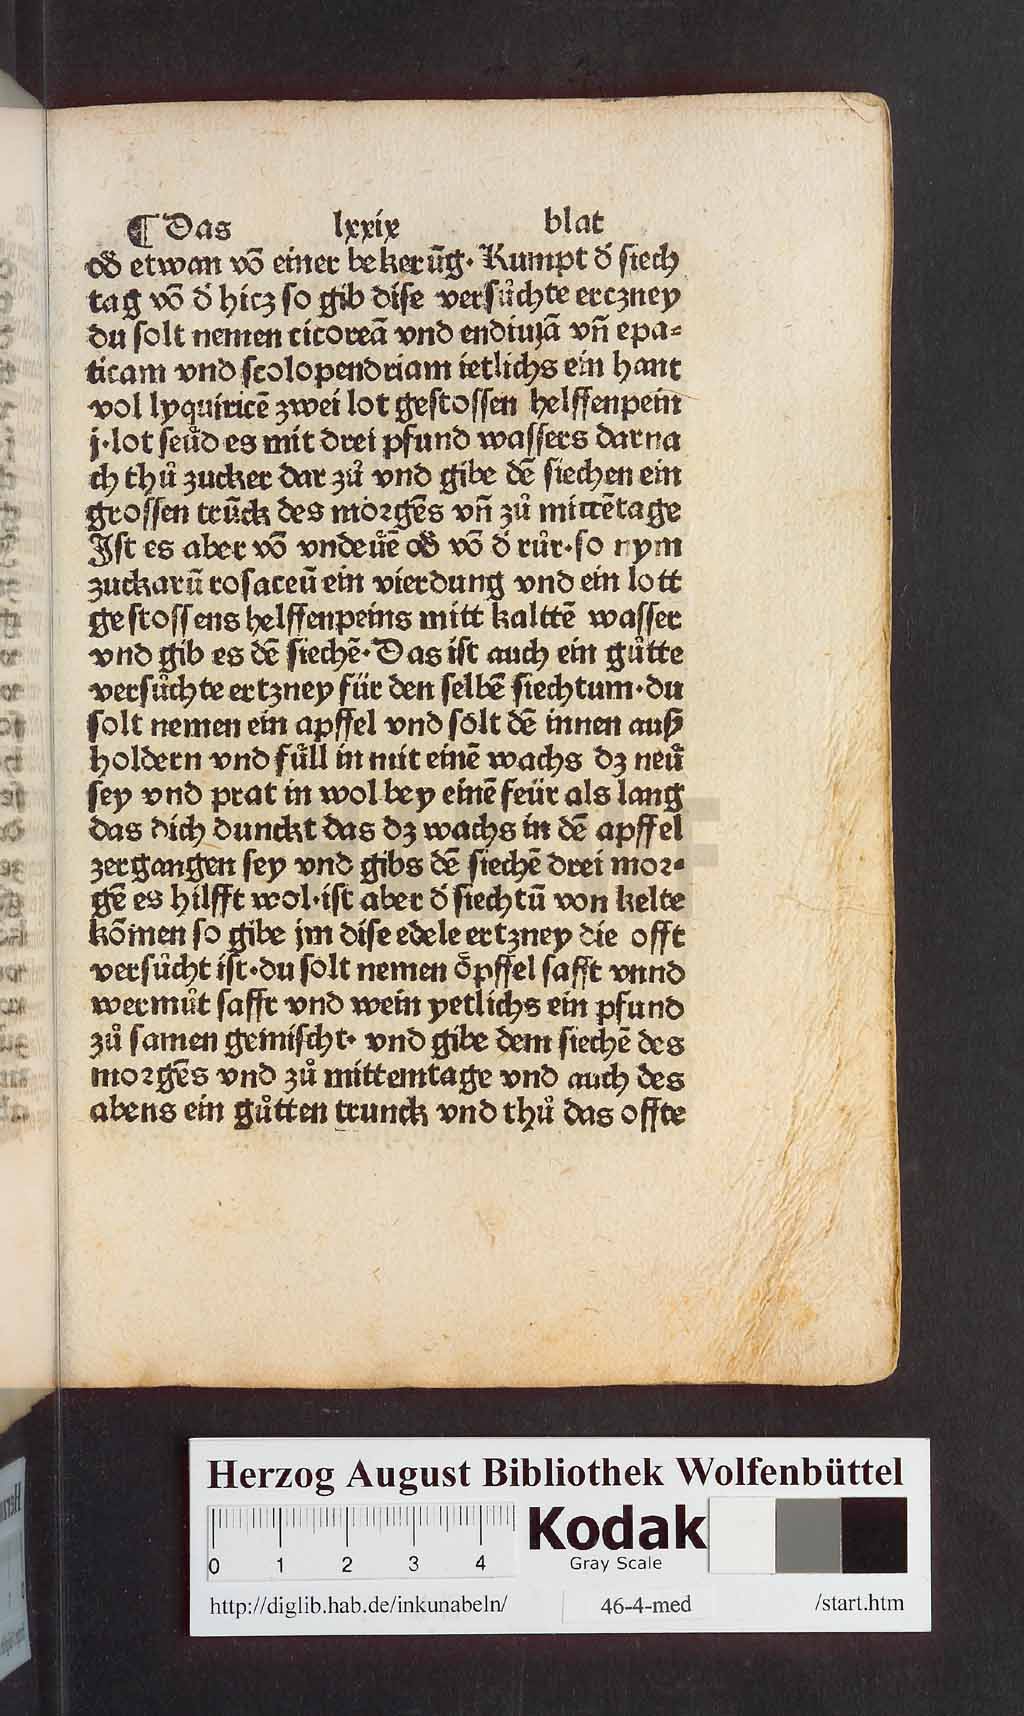 ¶ Das lxxix blat
od̕ etwan võ einer bekerũg· Kumpt d̕ siech
tag võ d̕ hicz so gib dise versůchte erczney
du solt nemen cicoreã vnd endiuiã vñ epa⸗
ticam vnd scolopendriam ietlichs ein hant
vol lyquiricẽ zwei lot gestossen helffenpein
j·lot seüd es mit drei pfund wassers darna
ch thů zucker dar zů vnd gibe dẽ siechen ein
grossen trũck des morgẽs vñ zů mittẽtage
Ist es aber võ vndeüẽ od̕ võ d̕ růr·so nym
zuckarũ rosaceũ ein vierdung vnd ein lott
gestossens helffenpeins mitt kalttẽ wasser
vnd gib es dẽ siechẽ· Das ist auch ein gůtte
versůchte ertzney für den selbẽ siechtum·du
solt nemen ein apffel vnd solt dẽ innen auß
holdern vnd füll in mit einẽ wachs dz neü
sey vnd prat in wol bey einẽ feür als lang
das dich dunckt das dz wachs in dẽ apffel
zergangen sey vnd gibs dẽ siechẽ drei mor⸗
gẽ es hilfft wol·ist aber d̕ siechtũ von kelte
kõmen so gibe jm dise edele ertzney die offt
versůcht ist·du solt nemen öpffel safft vnnd
wermůt safft vnd wein yetlichs ein pfund
zů samen gemischt· vnd gibe dem siechẽ des
morgẽs vnd zů mittemtage vnd auch des
abens ein gůtten trunck vnd thů das offte
Herzog August Bibliothek Wolfenbüttel
0 1 2 3 4
Kodak
Gray Scale
http://diglib.hab.de/inkunabeln/ 46-4-med /start.htm